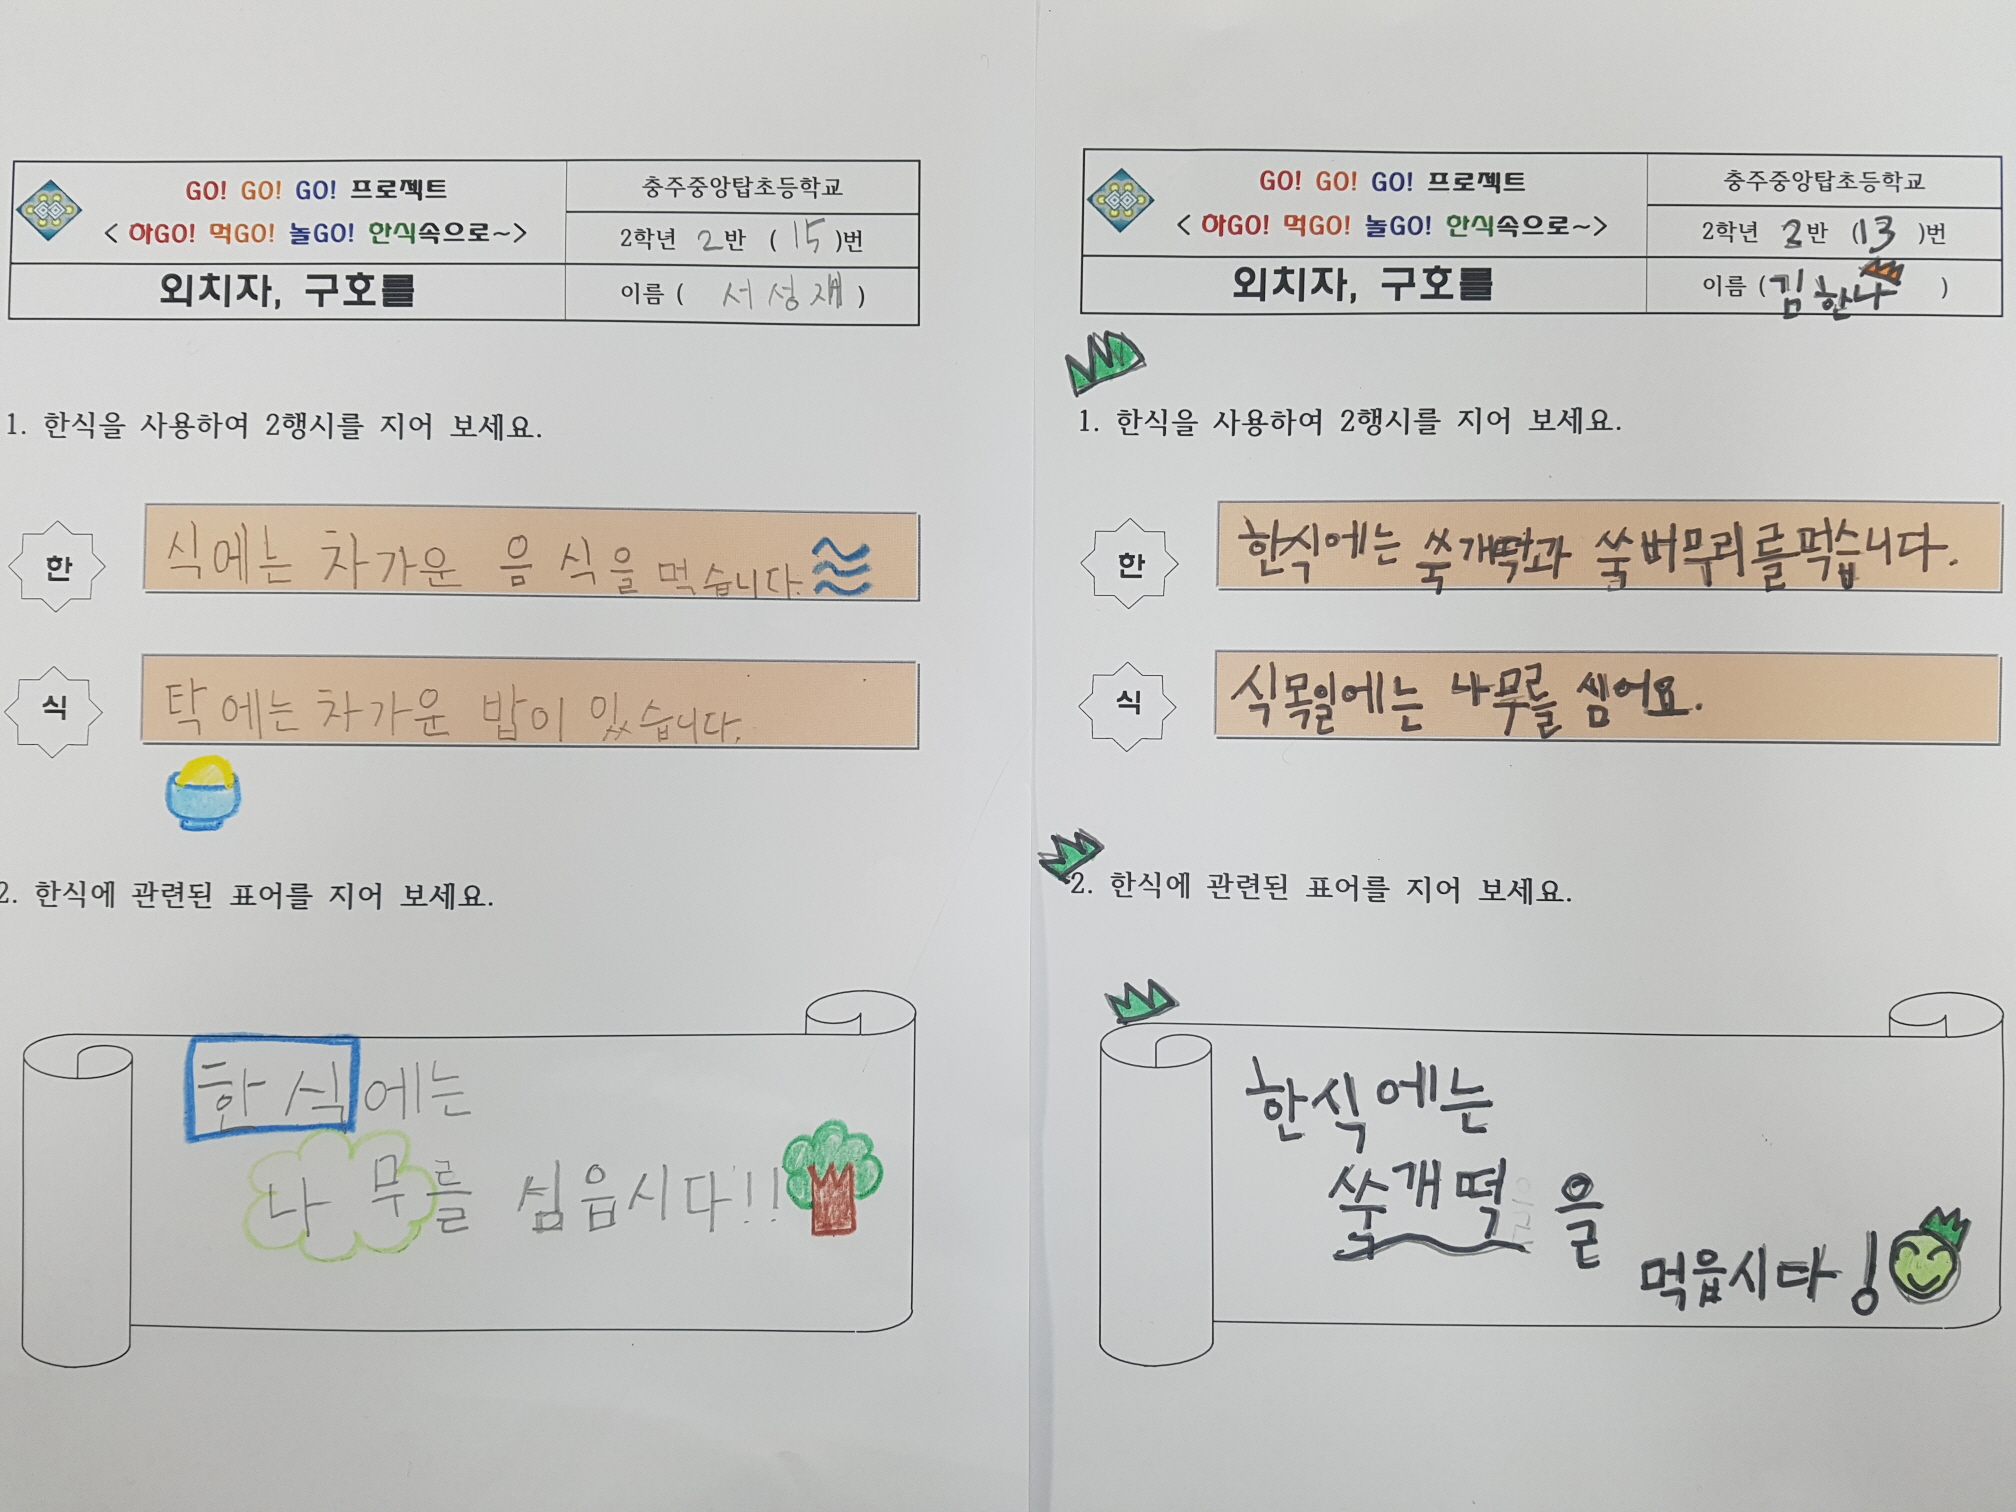 GO! GO! GO! 프로젝트
< 하GO! 먹GO! 놀GO! 한식속으로~>
외치자, 구호를
충주중앙탑초등학교
2학년 2반 ( 15 )번
이름 ( 서성재 )
1. 한식을 사용하여 2행시를 지어 보세요.
한 식에는 차가운 음식을 먹습니다.
식 탁에는 차가운 밥이 있습니다.
2. 한식에 관련된 표어를 지어 보세요.
한식에는
나무를 심읍시다!!
GO! GO! GO! 프로젝트
< 하GO! 먹GO! 놀GO! 한식속으로~>
외치자, 구호를
충주중앙탑초등학교
2학년 2반 (13 )번
이름 (김한나 )
1. 한식을 사용하여 2행시를 지어 보세요.
한 한식에는 쑥개떡과 쑥버무리를먹습니다.
식 식목일에는 나무를 심어요.
2. 한식에 관련된 표어를 지어 보세요.
한식에는
쑥개떡을
먹읍시다!